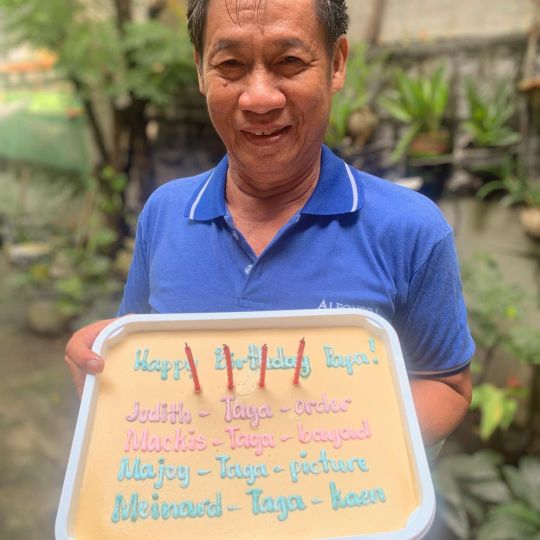 Happy Birthday Papa!
Judith - Taga - order
Mackis - Taga - bayad
Majoy - Taga - picture
Meinard - Taga - kaen